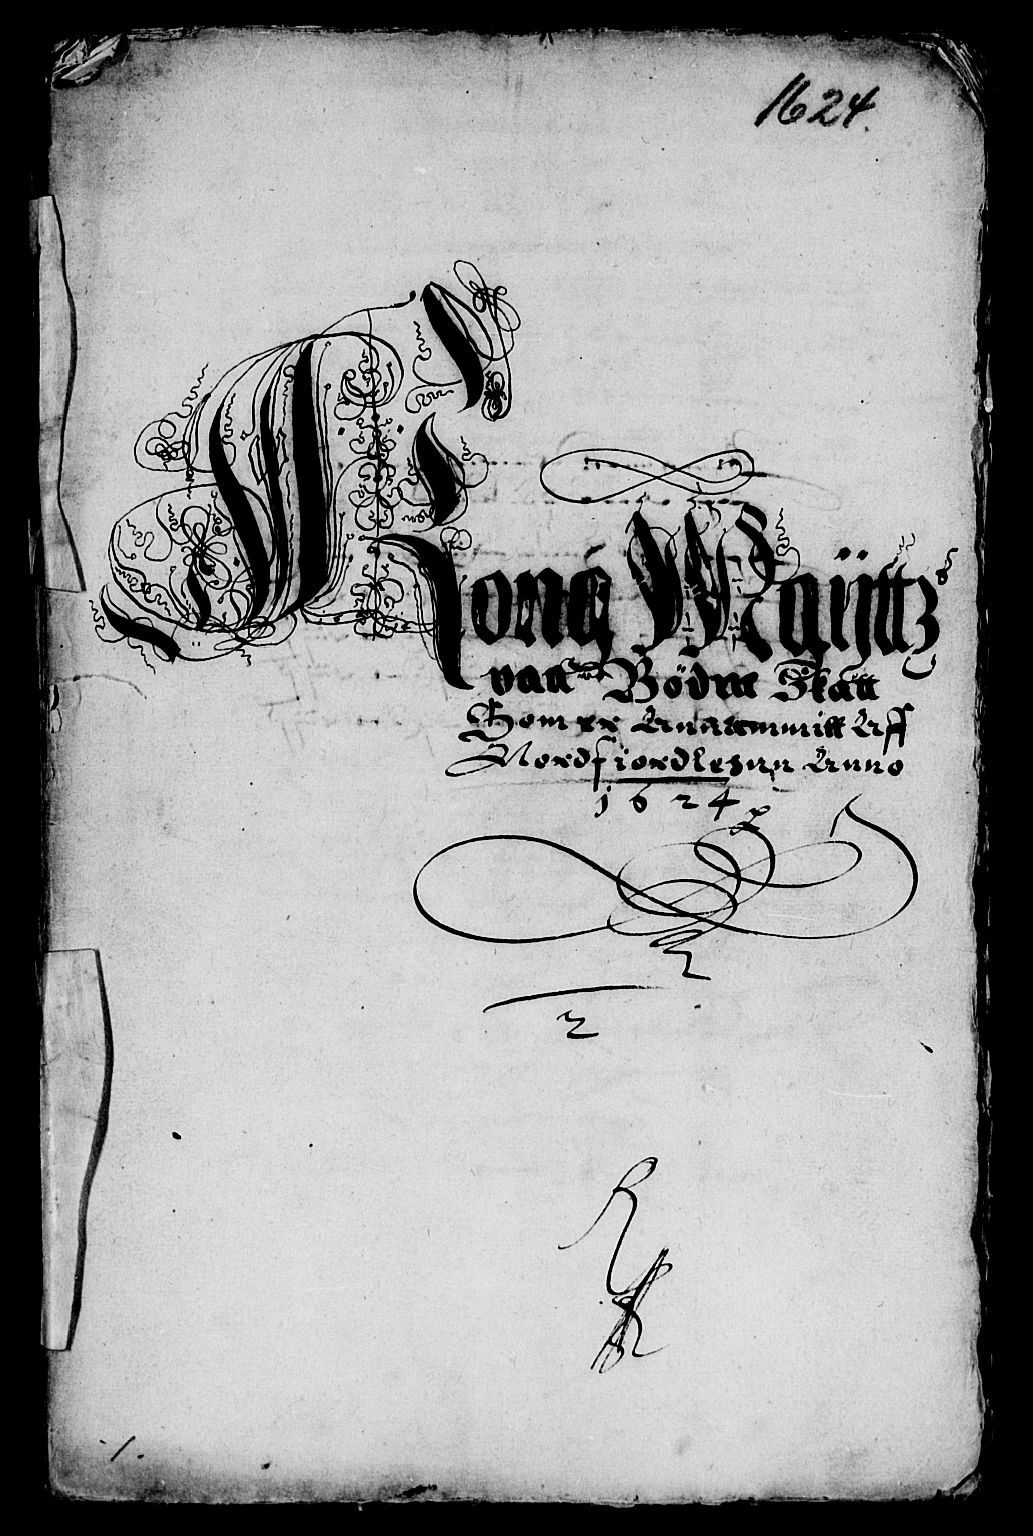 1624.
Kong Maÿttz
paa Böden Skatt
Som er Annammitt Aff
Nordfiordlehnn Anno
1624